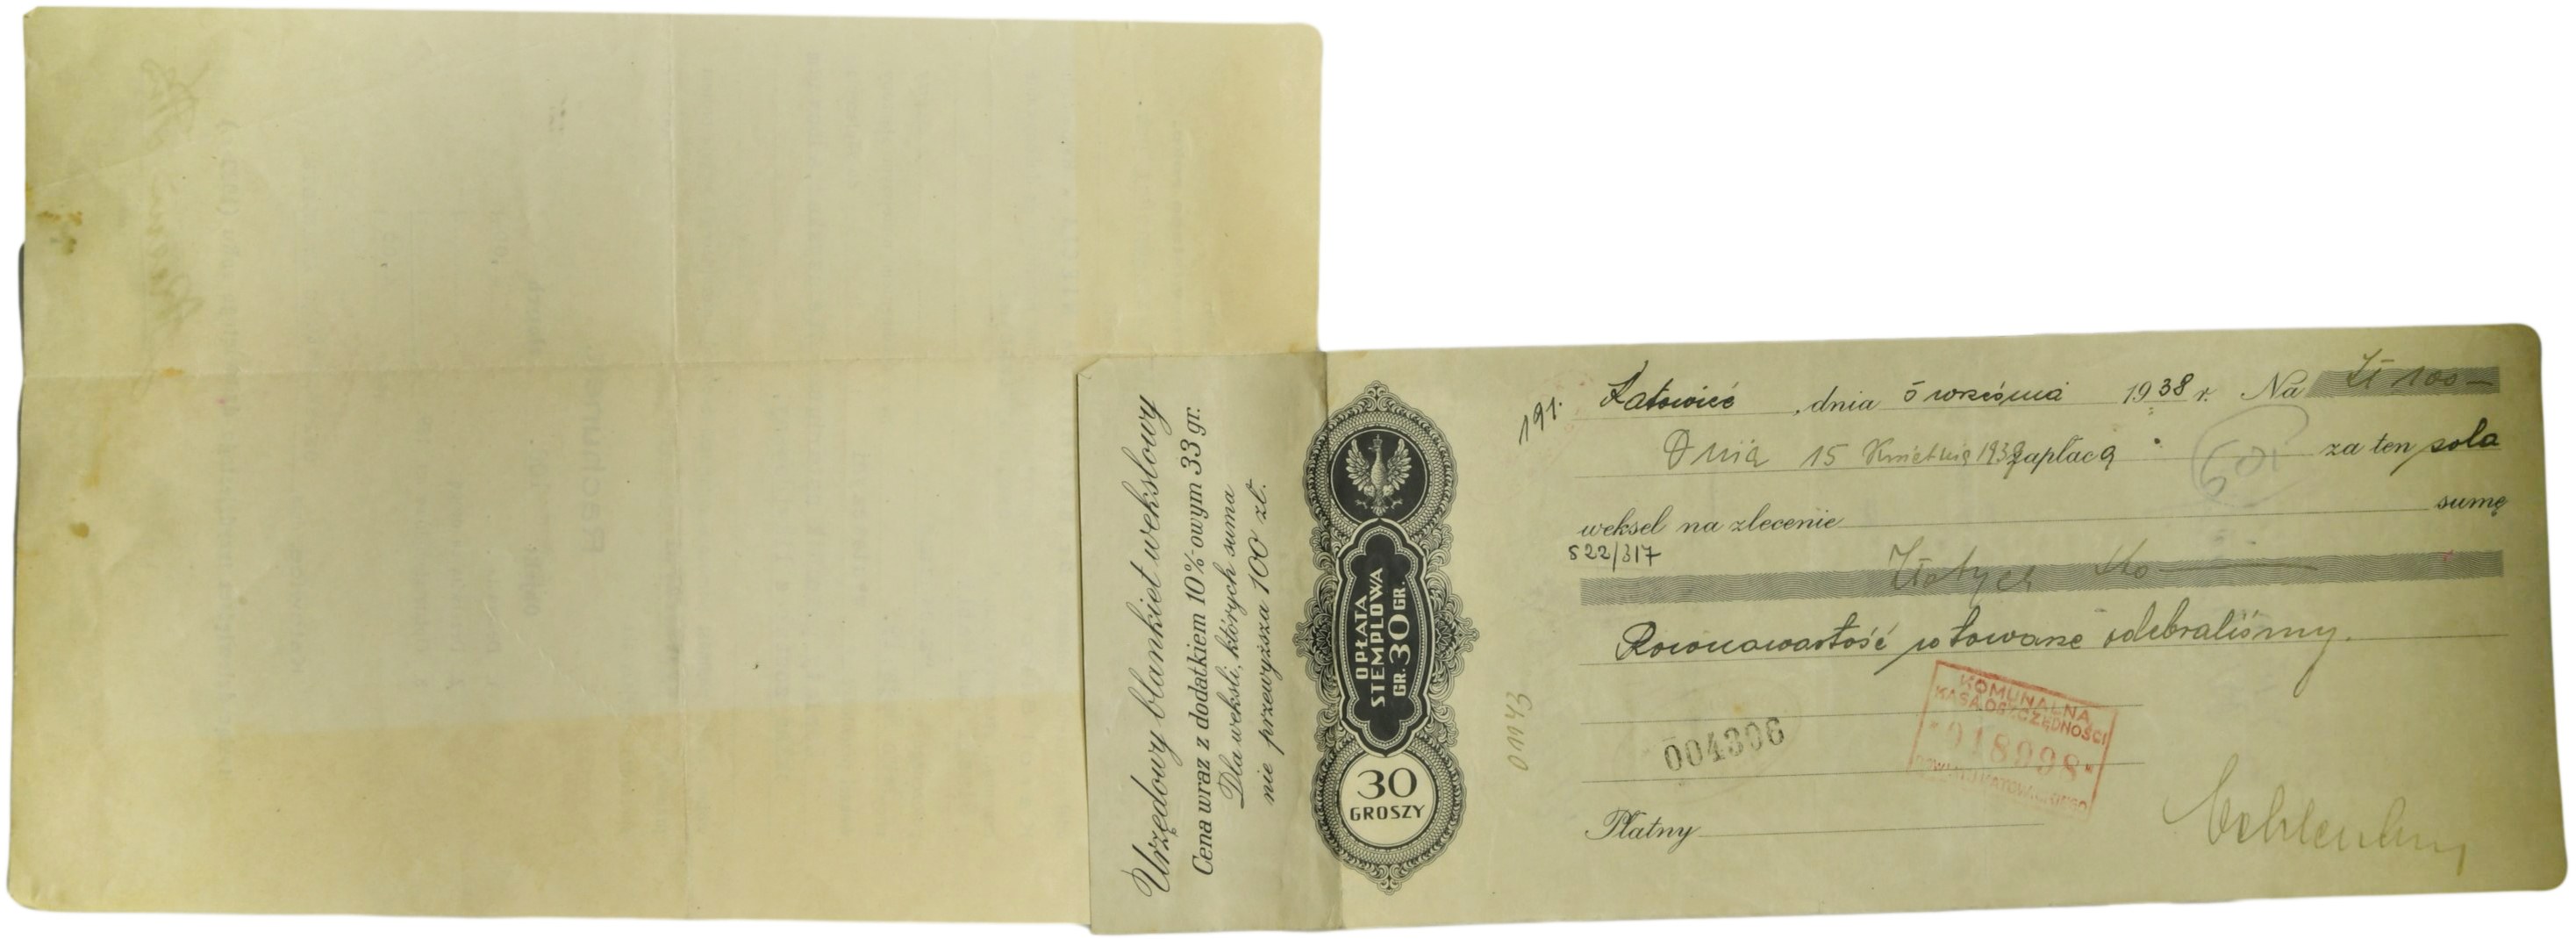 Urzędowy blankiet wekslowy
Cena wraz z dodatkiem 10%-owym 33 gr.
Dla weksli, których suma
nie przewyższa 100 zł.
OPŁATA
STEMPLOWA
GR. 30 GR.
30
GROSZY
191.
01143
Katowice, dnia 5 września 1938 r. Na Zł 100 —
Dnia 15 Kwietnia 1939 zapłacą za ten sola
weksel na zlecenie sumę
522/317
Złotych sto
Równowartość w towarze odebraliśmy.
004306
KOMUNALNA
KASA OSZCZĘDNOŚCI
*018998*
POWIATU KATOWICKIEGO
Płatny